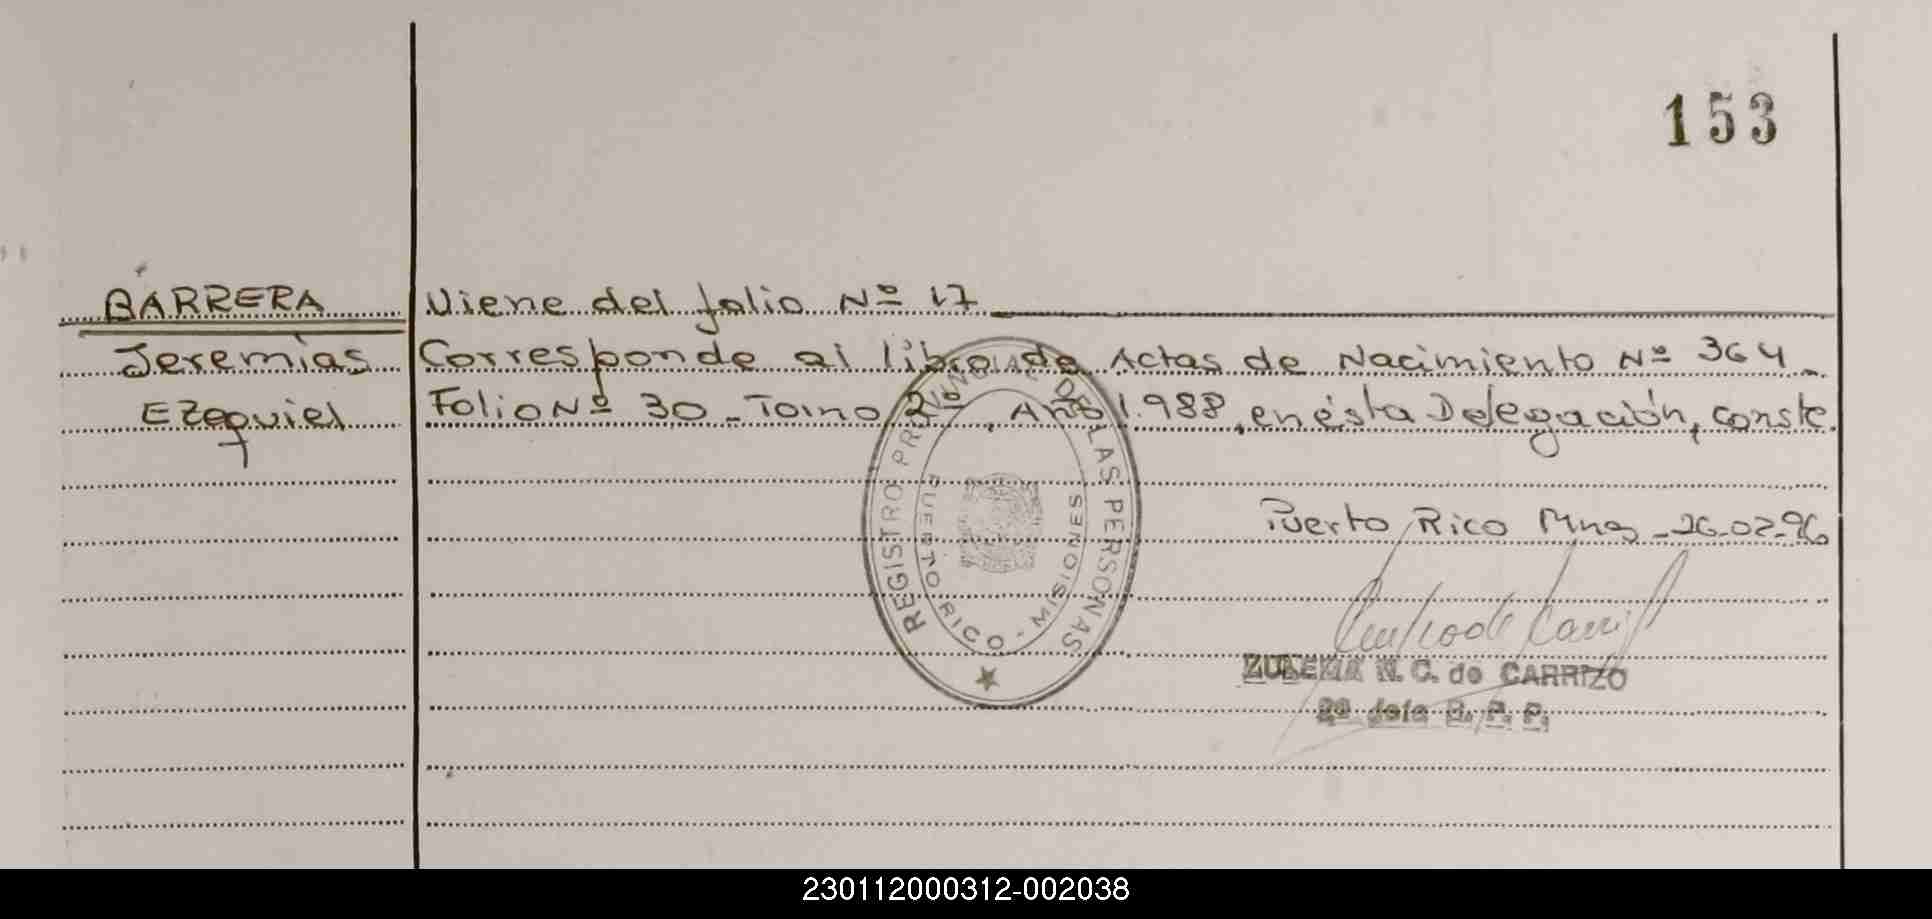 153
BARRERA Viene del folio Nº 17
Jeremías Corresponde al libro de Actas de Nacimiento Nº 364_
Ezequiel Folio Nº 30_Tomo 2º, Año 1.988, en ésta Delegación, conste.
REGISTRO PROVINCIAL DE LAS PERSONAS
PUERTO RICO - MISIONES
Puerto Rico Mnes_26-02-96
ZULEMA N. C. de CARRIZO
2º Jefe R. P. P.
230112000312-002038